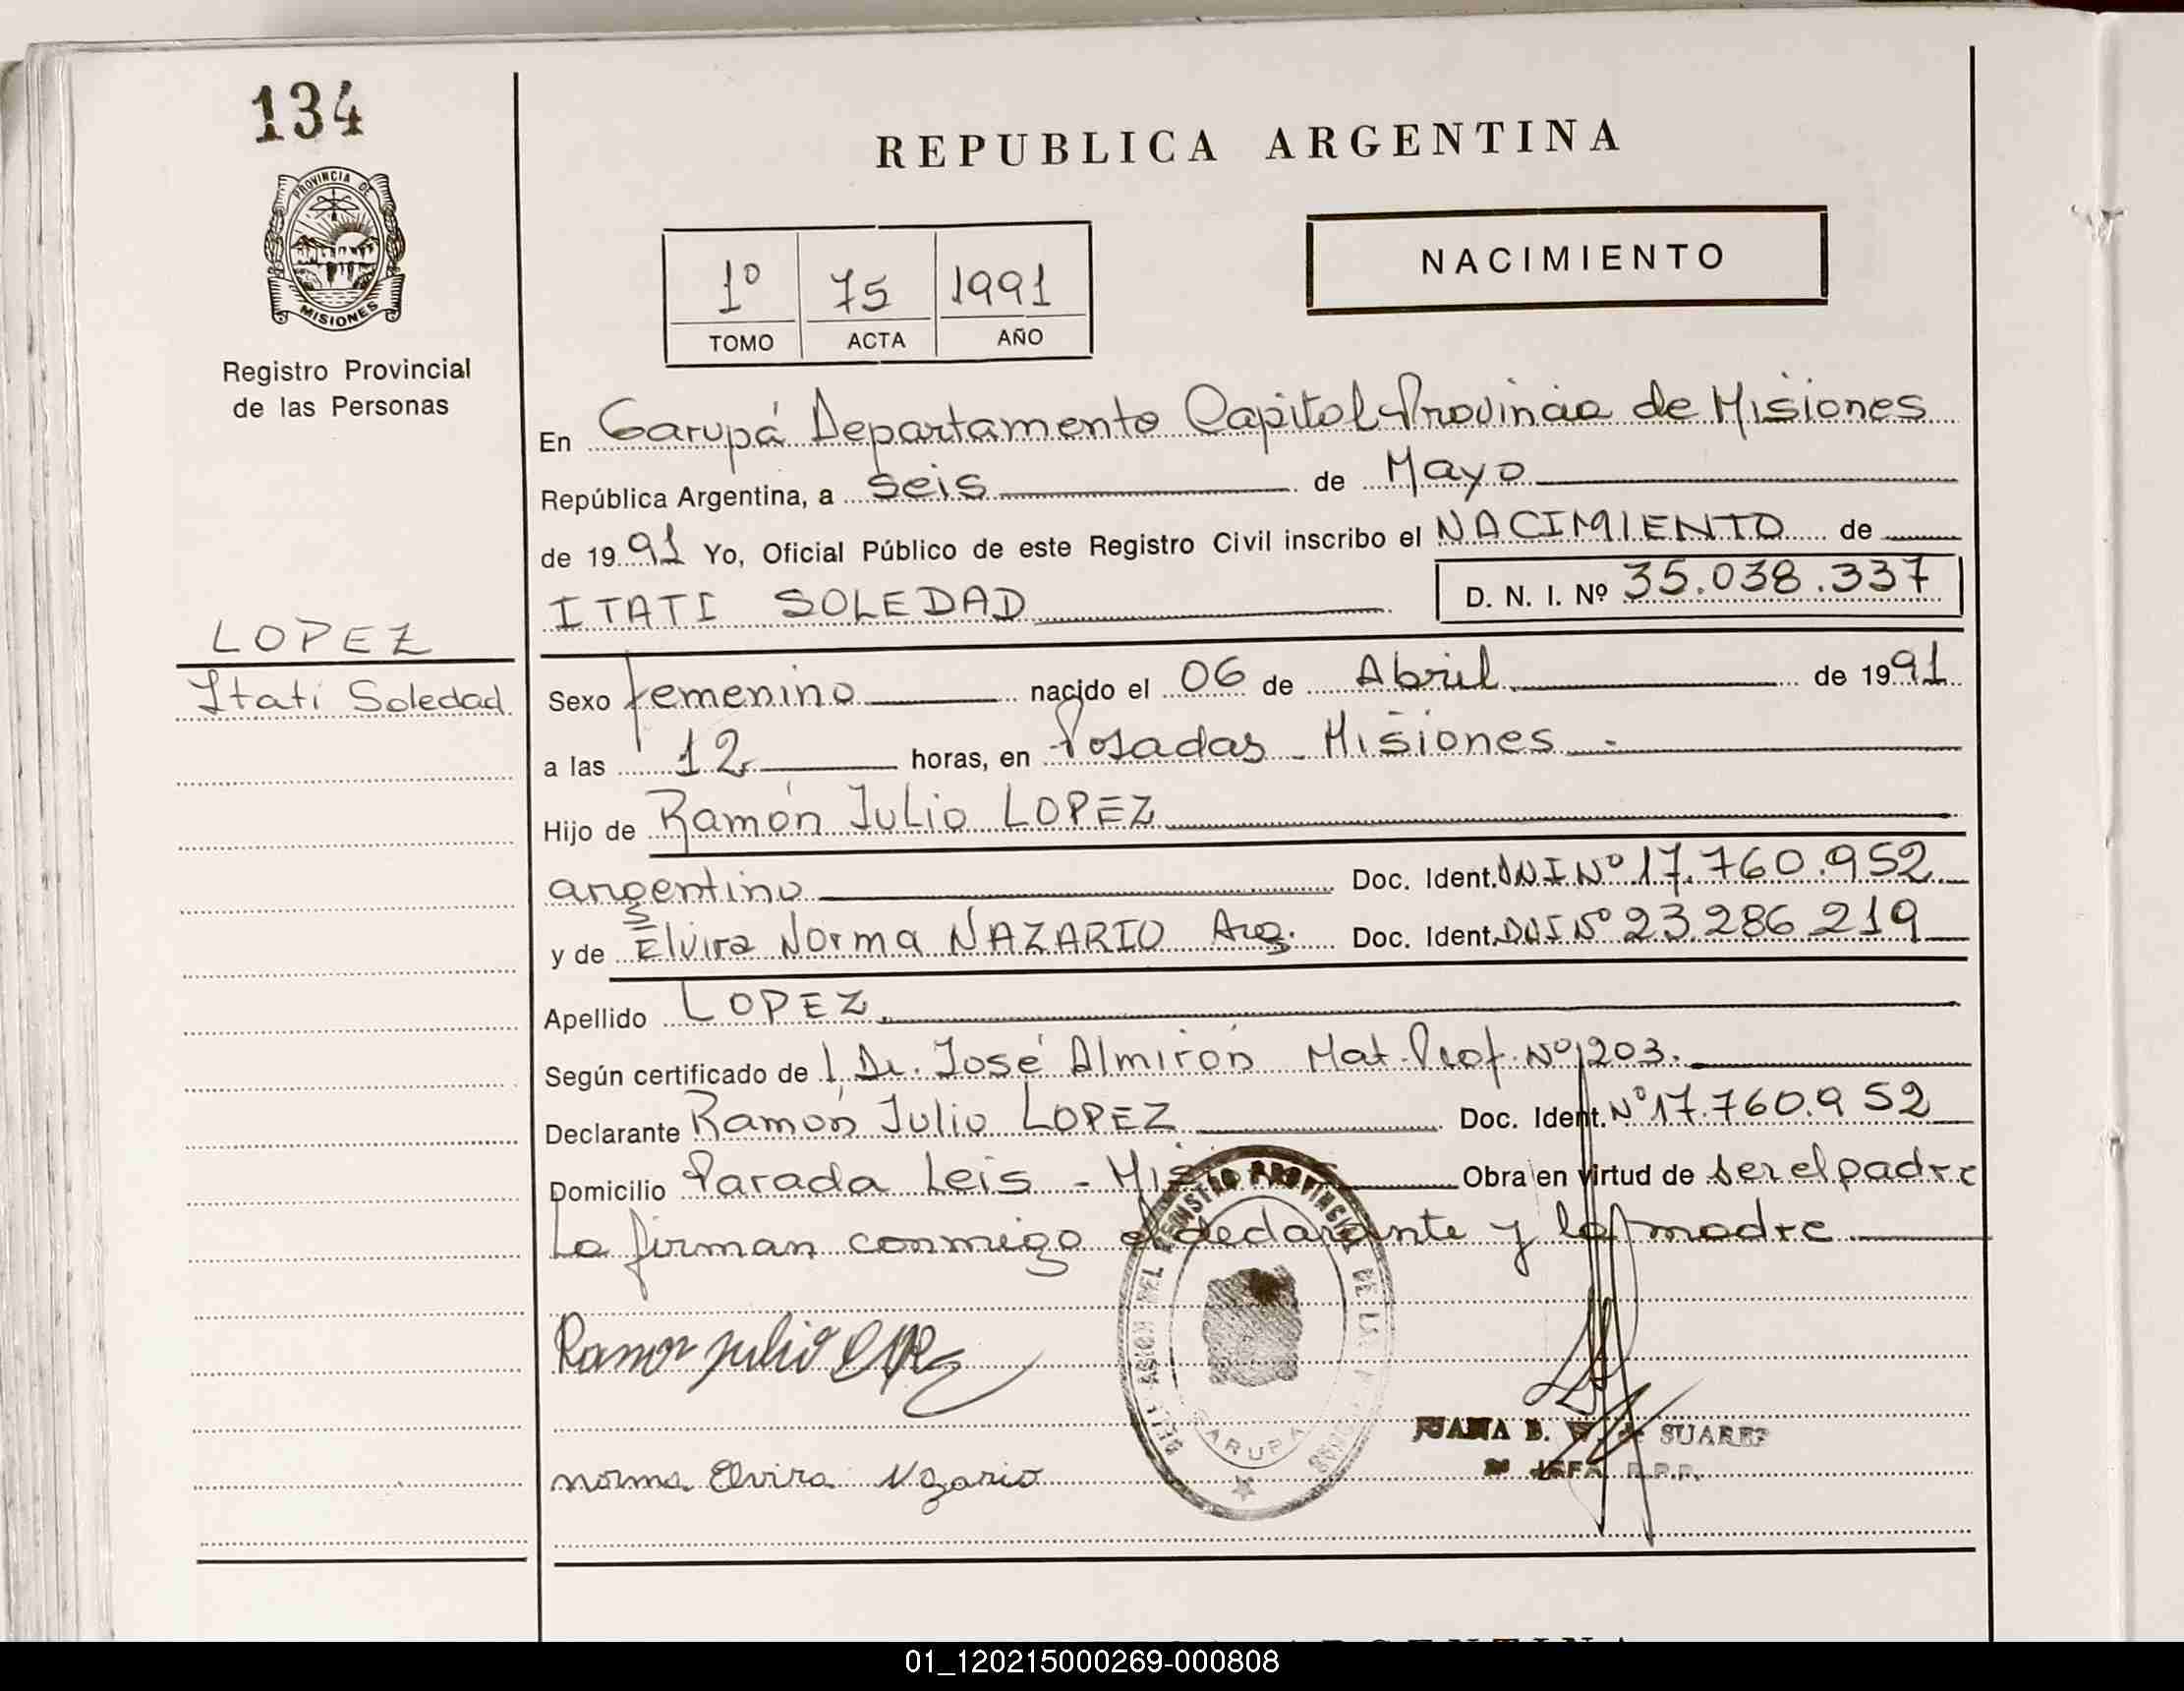 134
PROVINCIA DE
MISIONES
Registro Provincial
de las Personas
LOPEZ
Itatí Soledad
REPUBLICA ARGENTINA
1º 75 1991
TOMO ACTA AÑO
NACIMIENTO
En Garupá Departamento Capital Provincia de Misiones
República Argentina, a seis de Mayo
de 1991 Yo, Oficial Público de este Registro Civil inscribo el NACIMIENTO de
ITATI SOLEDAD D. N. I. Nº 35.038.337
Sexo femenino nacido el 06 de Abril de 1991
a las 12 horas, en Posadas - Misiones -
Hijo de Ramón Julio LOPEZ
argentino Doc. Ident. DNI Nº 17.760.952
y de Elvira Norma NAZARIO Arg. Doc. Ident. DNI Nº 23.286.219
Apellido LOPEZ
Según certificado de l Dr. José Almirón Mat. Prof. Nº 1203.
Declarante Ramón Julio LOPEZ Doc. Ident. Nº 17.760.952
Domicilio Parada Leis - Obra en virtud de ser el padre
La firman conmigo el declarante y la madre
Ramon Julio
norma Elvira Nazario
GARUPA
JUANA B. SUAREZ
JEFA R.P.P.
01_120215000269-000808